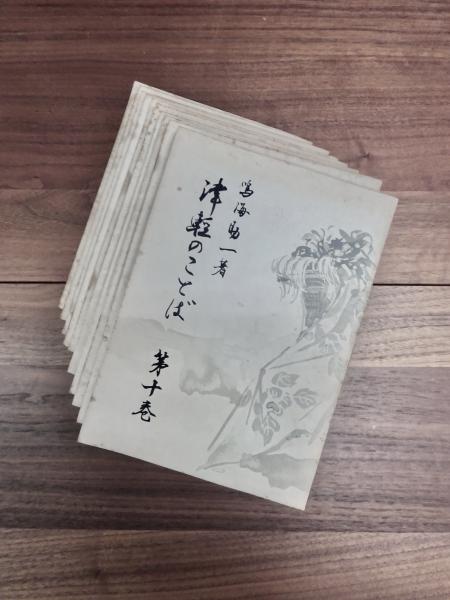 鳴海助一著
津軽のことば
第十巻